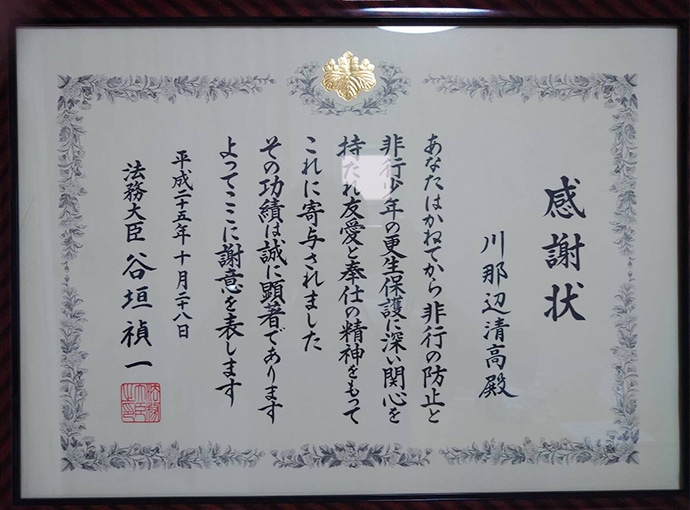 感謝状
川那辺清高殿
あなたはかねてから非行の防止と
非行少年の更生保護に深い関心を
持たれ友愛と奉仕の精神をもって
これに寄与されました
その功績は誠に顕著であります
よってここに謝意を表します
平成二十五年十月二十八日
法務大臣 谷垣禎一
法務大臣之印